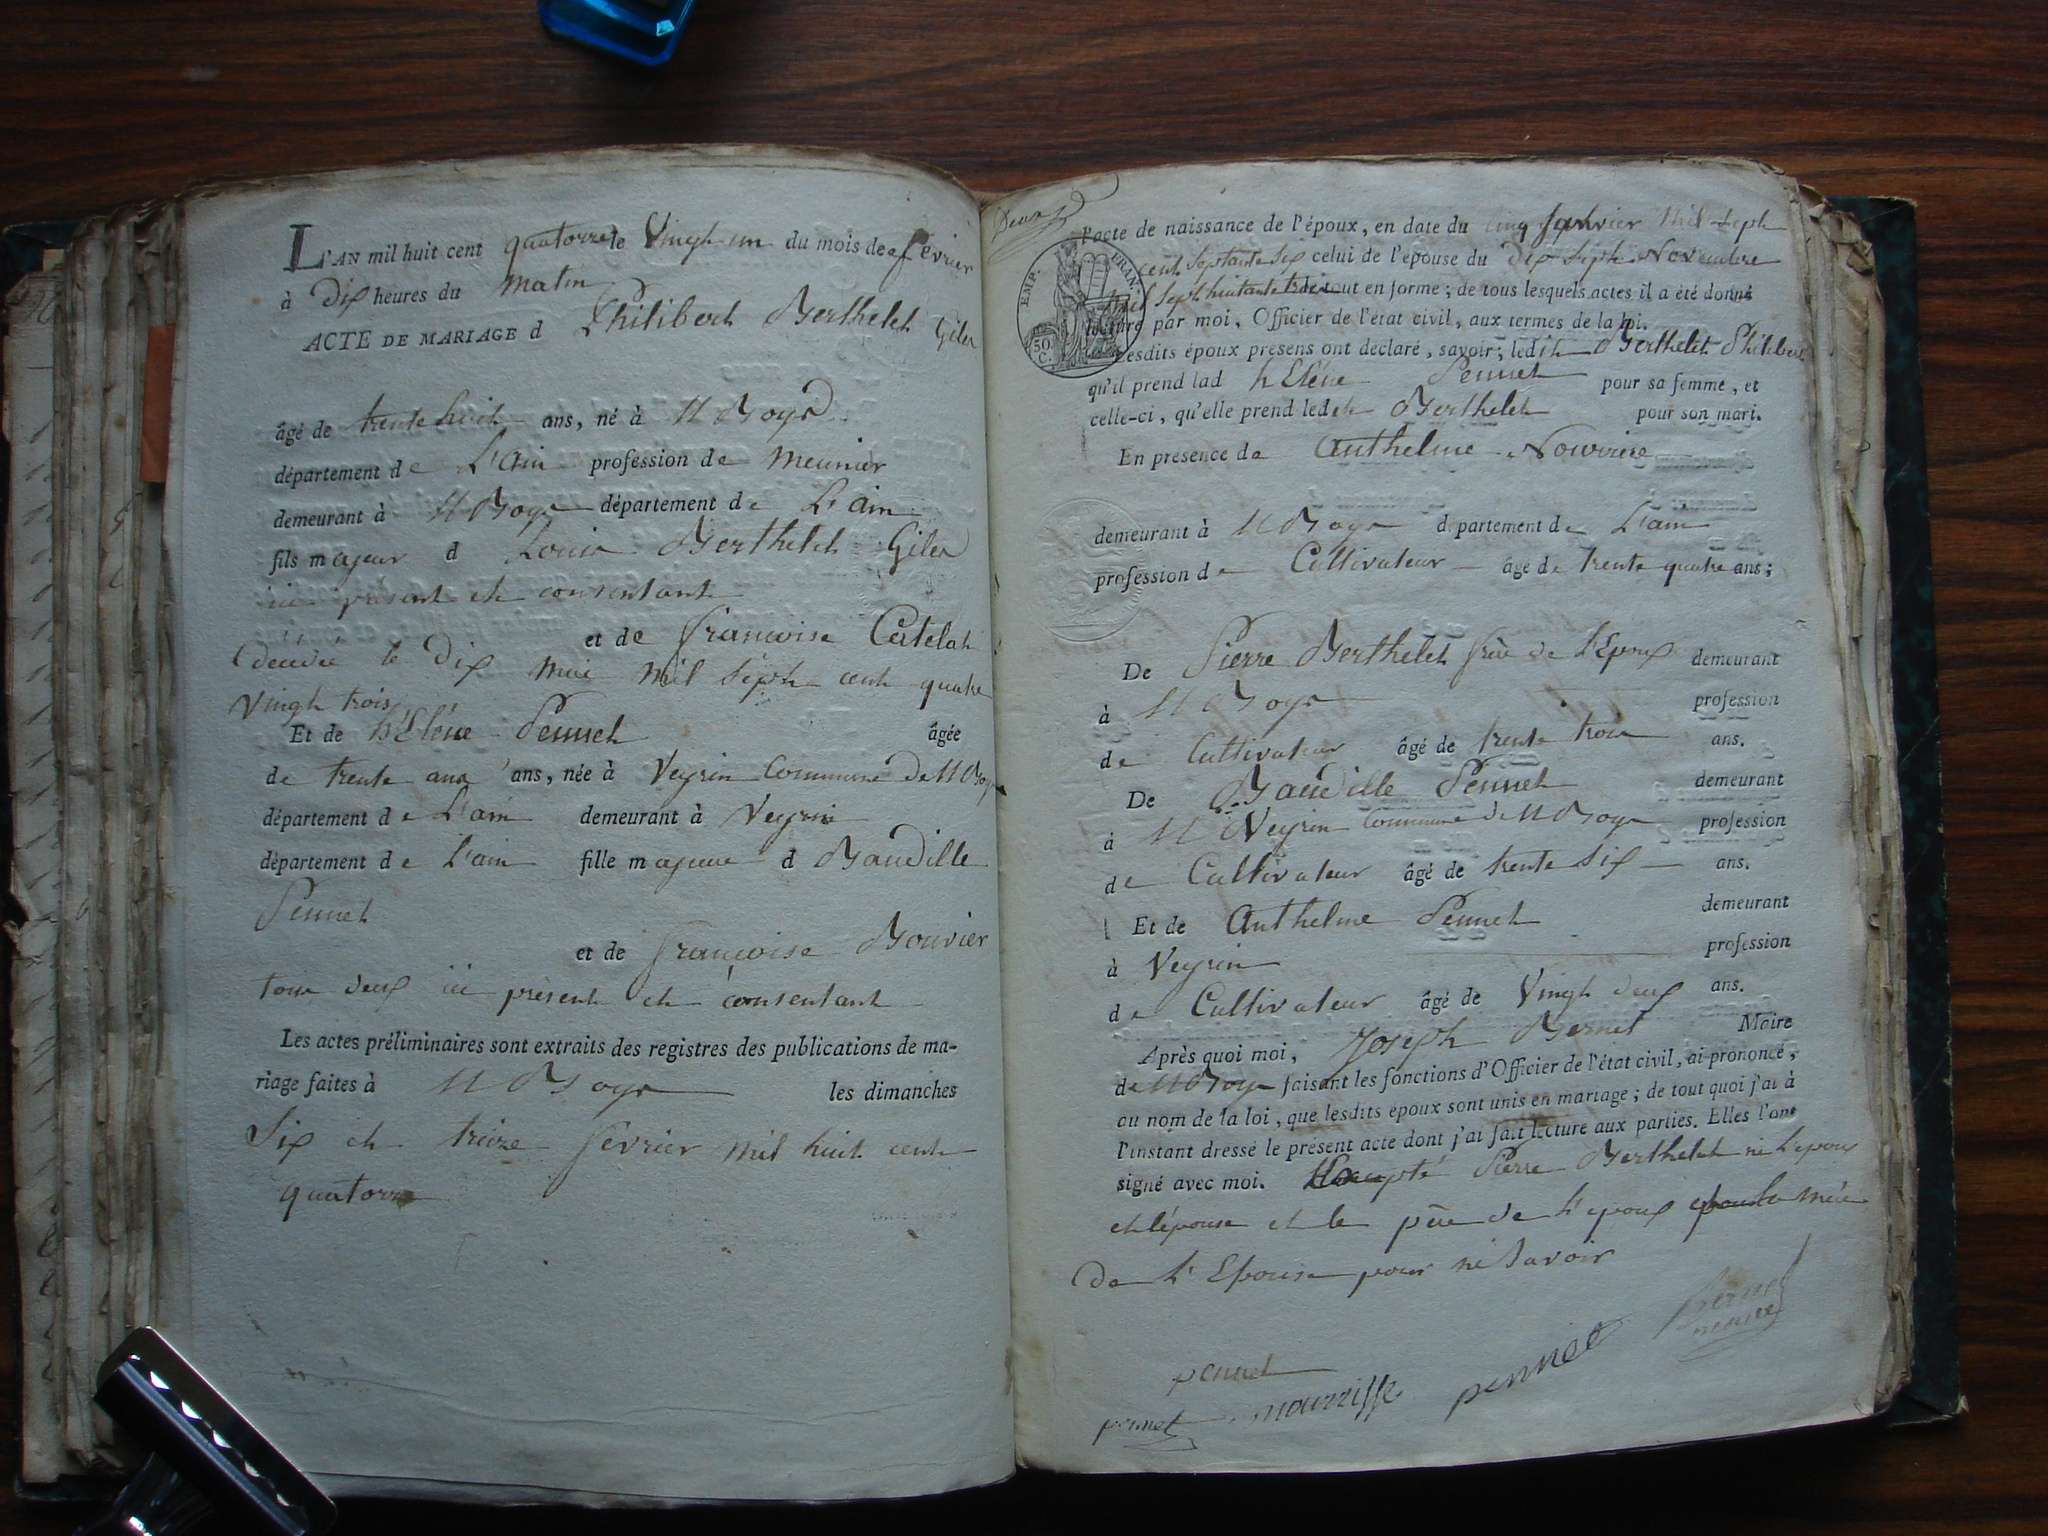 L'AN mil huit cent quatorze le Vingh un du mois de fevrier
à Dix heures du matin
ACTE DE MARIAGE d Philibert Berthelet Giler
âgé de trente huit ans, né à
département de L'ain profession de meunier
demeurant à département de L'ain
fils majeur d Louis Berthelet Giler
ici présent et consentant
et de francoise Catelah
décédée le Dix mai mil Seph cent quatre
Vingh trois
Et de hElène Pennet âgée
de trente ans ans, née à Veyrin Commune de
département de L'ain demeurant à Veyrin
département de L'ain fille majeure d Baudille
Pennet
et de françoise Bouvier
tous deux ici présent et consentant
Les actes préliminaires sont extraits des registres des publications de ma-
riage faites à les dimanches
Six et treize fevrier mil huit cent
quatorze
l'acte de naissance de l'époux, en date du cinq Janvier Mil Seph
cent Septante Six celui de l'épouse du Dix Seph Novembre
mil Seph huitante trois le tout en forme ; de tous lesquels actes il a été donné
lecture par moi, Officier de l'état civil, aux termes de la loi.
Lesdits époux présens ont déclaré, savoir ; ledit Berthelet Philibert
qu'il prend lad hElène Pennet pour sa femme, et
celle-ci, qu'elle prend ledit Berthelet pour son mari.
EMP. FRAN.
50 C.
En presence de Anthelme Nourrice
demeurant à département de L'ain
profession de Cultivateur âgé de trente quatre ans ;
De Pierre Berthelet frère de l'Epoux demeurant
à profession
de Cultivateur âgé de trente trois ans.
De Baudille Pennet demeurant
à Veyrin Commune de profession
de Cultivateur âgé de trente Six ans.
Et de Anthelme Pennet demeurant
à Veyrin profession
de Cultivateur âgé de Vingh deux ans.
Après quoi moi, Joseph Bernet Maire
de faisant les fonctions d'Officier de l'état civil, ai prononcé,
au nom de la loi, que lesdits époux sont unis en mariage ; de tout quoi j'ai à
l'instant dressé le présent acte dont j'ai fait lecture aux parties. Elles l'ont
signé avec moi. Pierre Berthelet ni l'epoux
et l'épouse et le père de l'epoux la mère
De l'Epouse pour ne Savoir
pennet
pennet nourrisse pennet